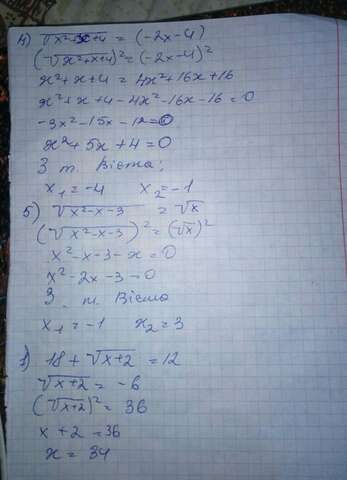 4) √x²+x+4 = (-2x-4)
(√x²+x+4)² = (-2x-4)²
x²+x+4 = 4x²+16x+16
x²+x+4-4x²-16x-16=0
-3x²-15x-12=0
x²+5x+4=0
З т. Вієта;
x₁=-4 x₂=-1
5) √x²-x-3 = √x
(√x²-x-3)² = (√x)²
x²-x-3-x=0
x²-2x-3=0
З т. Вієта
x₁=-1 x₂=3
1) 18+√x+2 = 12
√x+2 = -6
(√x+2)² = 36
x+2=36
x=34